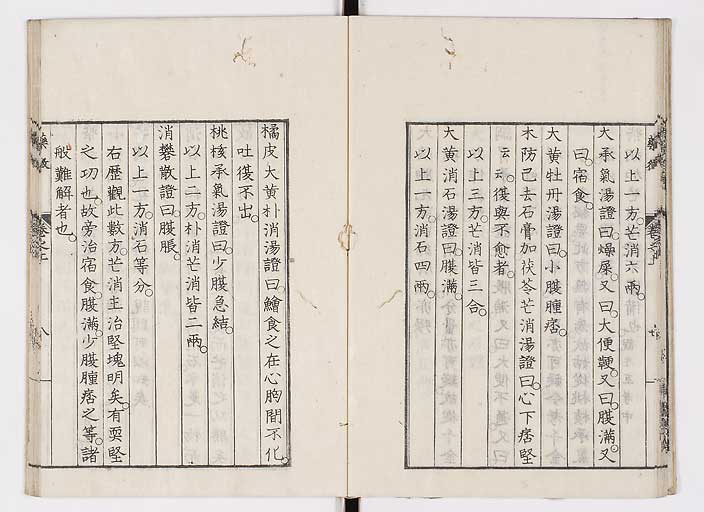 以上一方。芒消六兩。
大承氣湯證曰。燥屎。又曰。大便鞕。又曰。腹滿。又
曰。宿食。
大黄牡丹湯證曰。小腹腫痞。
木防己去石膏加茯苓芒消湯證曰。心下痞堅
云云。復與不愈者。
以上三方。芒消皆三合。
大黄消石湯證曰。腹滿。
以上一方。消石四兩。
橘皮大黄朴消湯證曰。鱠食之在心胸間不化。
吐復不出。
桃核承氣湯證曰。少腹急結。
以上二方。朴消芒消皆二兩。
消礬散證曰。腹脹。
以上一方。消石等分。
右歷觀此數方。芒消主治堅塊明矣。有耎堅
之功也。故旁治宿食。腹滿。少腹腫痞之等。諸
般難解者也。